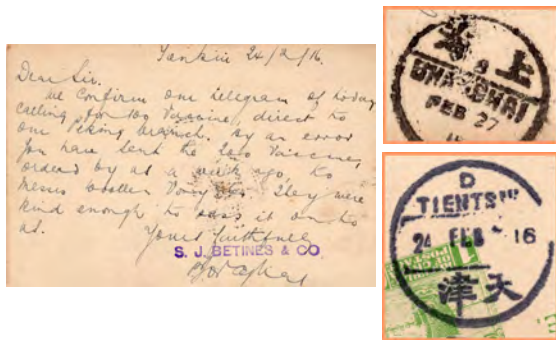 24/2/16.
Dear Sir.
We confirm our telegram of today
calling for 100 Vaccine, direct to
our Peking branch. By an error
you have sent the 200 Vaccine,
ordered by us a week ago, to
Messrs They were
kind enough to pass it on to
us. Yours faithfully
S. J. BETINES & CO.
上海
SHANGHAI
FEB 27
D
TIENTSIN
24 FEB 16
天津